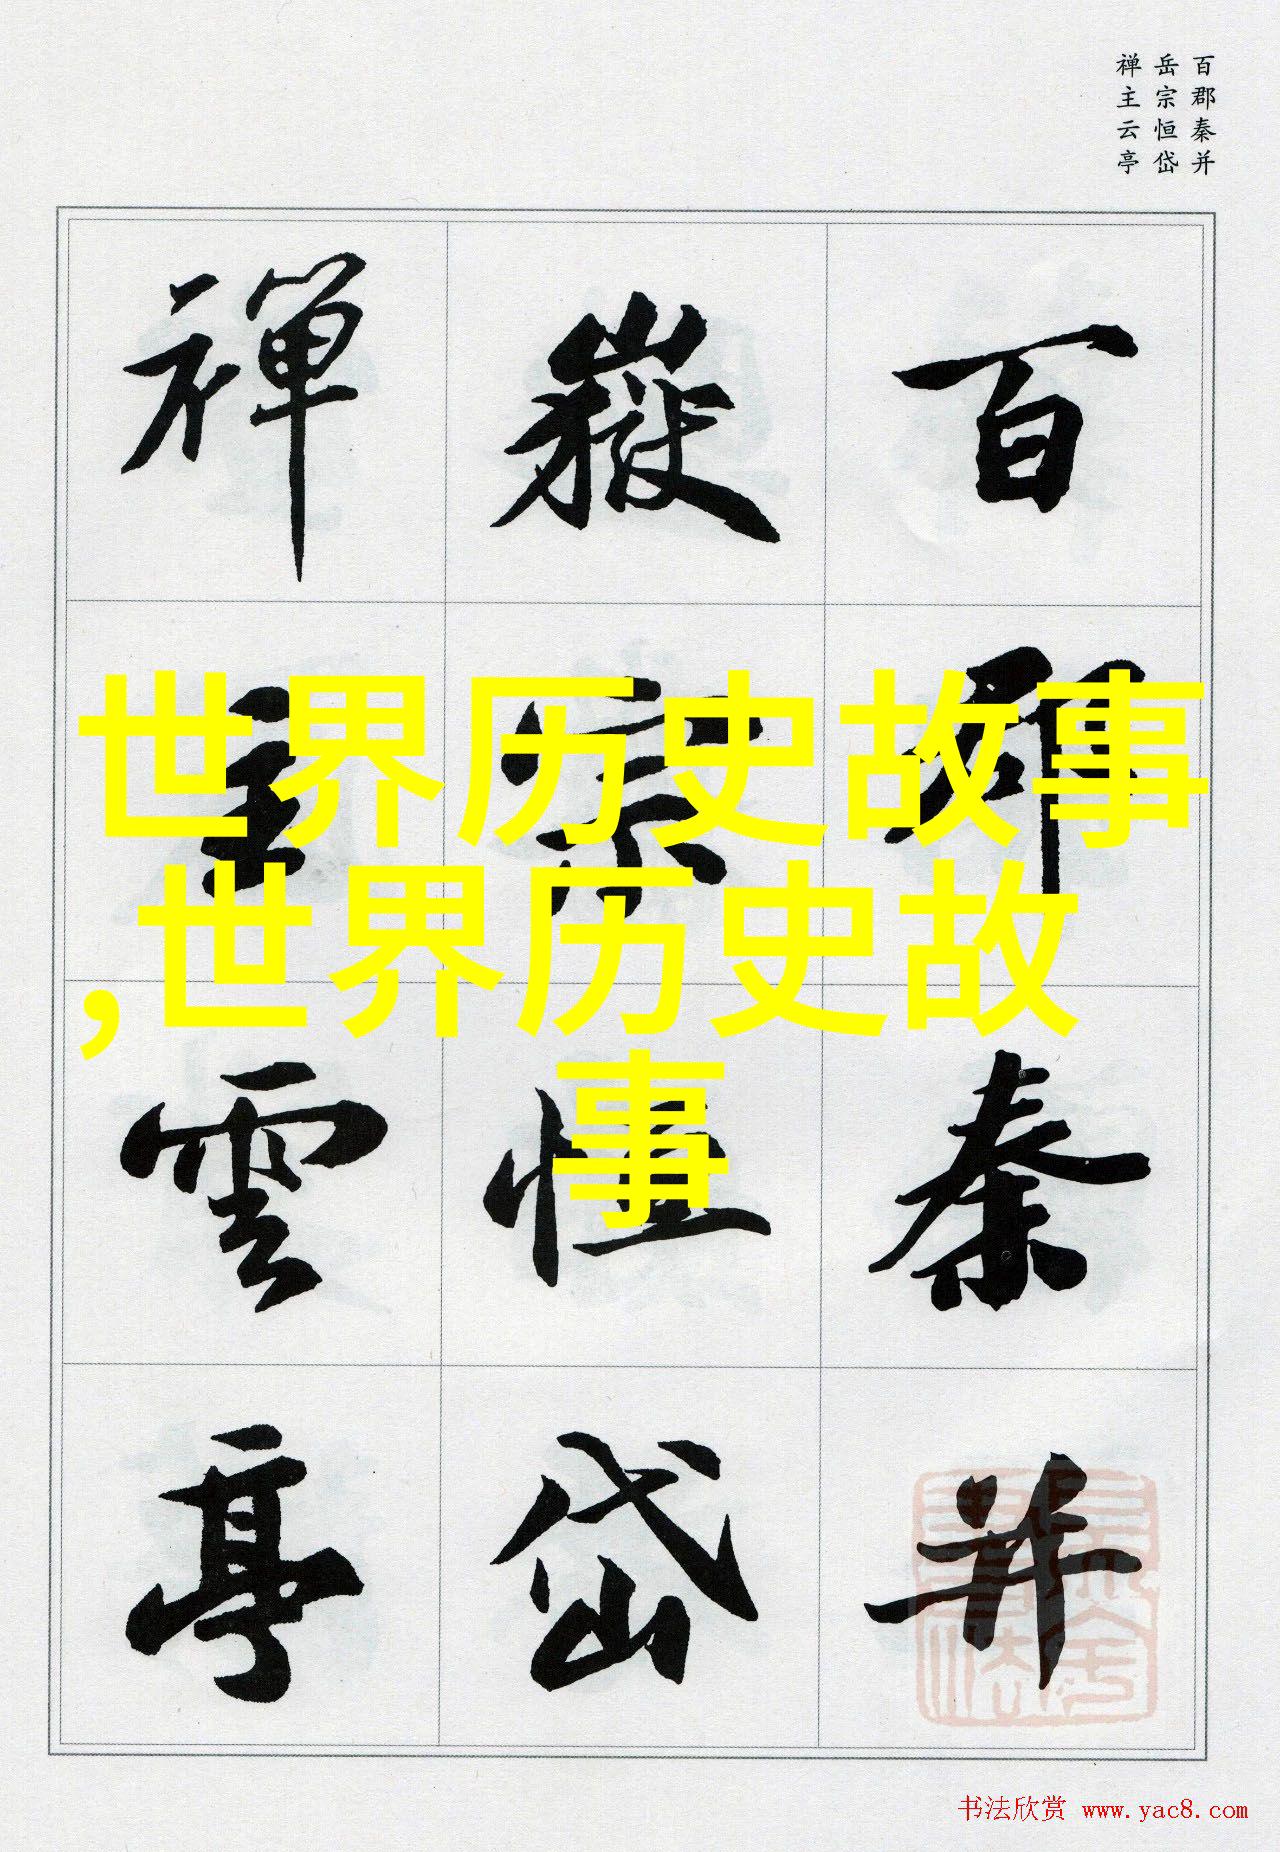 百郡秦并
岳宗恒岱
禅主云亭
百郡秦并
嶽宗恒岱
禪主雲亭
世界历史故事
,世界历史故
事
书法欣赏 www.yac8.com